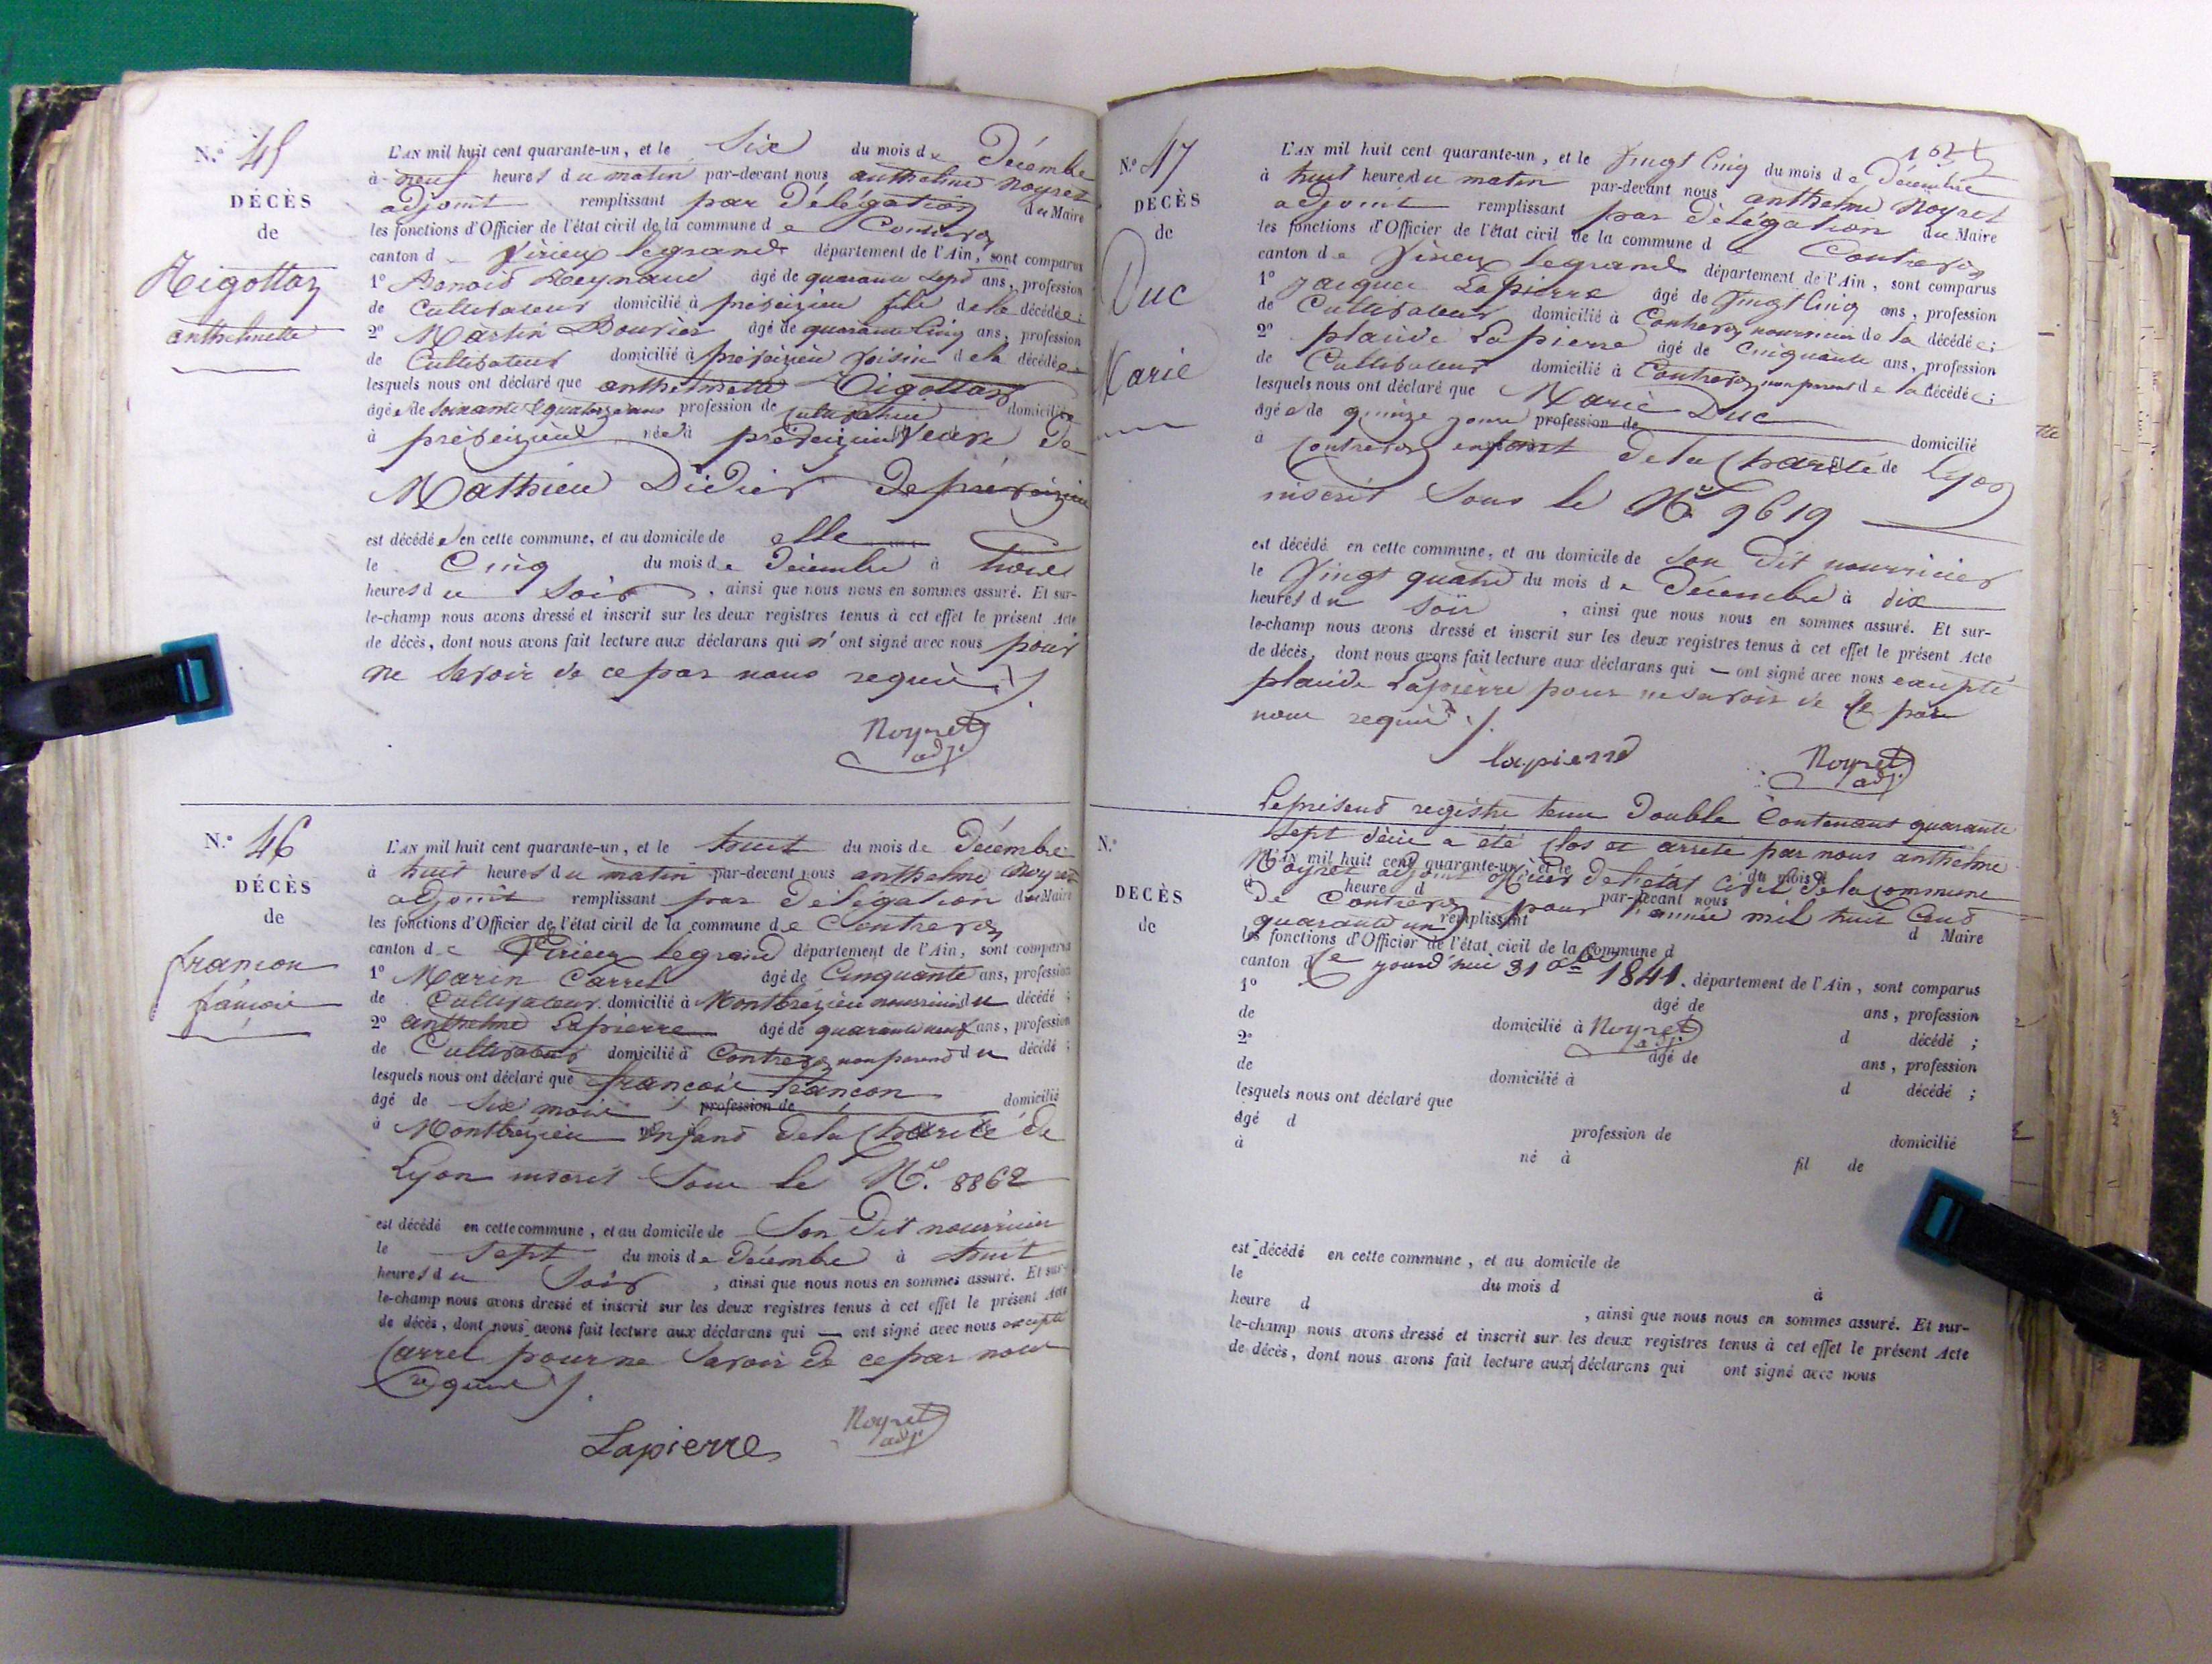 N.° 45
DÉCÈS
de
anthelmette
L'AN mil huit cent quarante-un, et le Six du mois de Décembre
à neuf heures du matin par-devant nous anthelme Noyret
adjoint remplissant par Délégation du Maire
les fonctions d'Officier de l'état civil de la commune de Contrevoz
canton d Virieu legrand département de l'Ain, sont comparus
1° Benoit Reynaud âgé de quarante sept ans, profession
de Cultivateur domicilié à préveizieu fils de la décédée;
2° Martin Bouvier âgé de quarante Cinq ans, profession
de Cultivateur domicilié à préveizieu voisin de la décédée
lesquels nous ont déclaré que anthelmette
âgée de soixante quatorze ans profession de cultivatrice domiciliée
à préveizieu née à préveizieu veuve De
Mathieu Didier De préveizieu
est décédée en cette commune, et au domicile de elle
le Cinq du mois de Décembre à
heures du Soir, ainsi que nous nous en sommes assuré. Et sur-
le-champ nous avons dressé et inscrit sur les deux registres tenus à cet effet le présent Acte
de décès, dont nous avons fait lecture aux déclarans qui n'ont signé avec nous pour
ne Savoir de ce par nous requis
Noyret
adj.
N.° 46
DÉCÈS
de
françon
françois
L'AN mil huit cent quarante-un, et le huit du mois de Décembre
à huit heures du matin par-devant nous anthelme Noyret
adjoint remplissant par Délégation du Maire
les fonctions d'Officier de l'état civil de la commune de Contrevoz
canton de Virieu legrand département de l'Ain, sont comparus
1° Marin Carrel âgé de Cinquante ans, profession
de Cultivateur domicilié à Montbrézieu nourricier du décédé;
2° anthelme Lapierre âgé de quarante neuf ans, profession
de Cultivateur domicilié à Contrevoz non parent du décédé;
lesquels nous ont déclaré que françois françon
âgé de Six mois profession de domicilié
à Montbrézieu enfant De la Charité de
Lyon inscrit Sous le N°. 8862
est décédé en cette commune, et au domicile de Son Dit nourricier
le Sept du mois de Décembre à huit
heures du Soir, ainsi que nous nous en sommes assuré. Et sur-
le-champ nous avons dressé et inscrit sur les deux registres tenus à cet effet le présent Acte
de décès, dont nous avons fait lecture aux déclarans qui — ont signé avec nous excepté
Carrel pour ne Savoir de ce par nous
requis
Lapierre
Noyret
adj.
N° 47
DÉCÈS
de
Duc
Marie
L'AN mil huit cent quarante-un, et le Vingt Cinq du mois de Décembre
à huit heures du matin par-devant nous anthelme Noyret
adjoint remplissant par Délégation du Maire
les fonctions d'Officier de l'état civil de la commune de Contrevoz
canton de Virieu legrand département de l'Ain, sont comparus
1° Jacques Lapierre âgé de Vingt Cinq ans, profession
de Cultivateur domicilié à Contrevoz nourricier de la décédée;
2° plaide Lapierre âgé de Cinquante ans, profession
de Cultivateur domicilié à Contrevoz non parent de la décédée;
lesquels nous ont déclaré que Marie Duc
âgée de quinze jours profession de domicilié
à Contrevoz enfant De la Charité de Lyon
inscrit Sous le N° 9619
est décédé en cette commune, et au domicile de Son Dit nourricier
le Vingt quatre du mois de Décembre à dix
heures du Soir, ainsi que nous nous en sommes assuré. Et sur-
le-champ nous avons dressé et inscrit sur les deux registres tenus à cet effet le présent Acte
de décès, dont nous avons fait lecture aux déclarans qui — ont signé avec nous excepté
plaide Lapierre pour ne Savoir de ce par
nous requis
lapierre
Noyret
adj.
Le présent registre tenu Double Contenant quarante
Sept décès a été Clos et arrêté par nous anthelme
Noyret adjoint officier De l'état Civil De la Commune
De Contrevoz pour l'année mil huit Cent
quarante un
Ce jourd'hui 31 Xbre 1841.
Noyret
adj.
N.°
DÉCÈS
de
L'AN mil huit cent quarante-un, et le du mois d
à heure d par-devant nous
remplissant d Maire
les fonctions d'Officier de l'état civil de la commune d
canton d département de l'Ain, sont comparus
1° âgé de ans, profession
de domicilié à d décédé;
2° âgé de ans, profession
de domicilié à d décédé;
lesquels nous ont déclaré que
âgé d profession de domicilié
à né à fil de
est décédé en cette commune, et au domicile de
le du mois d à
heure d , ainsi que nous nous en sommes assuré. Et sur-
le-champ nous avons dressé et inscrit sur les deux registres tenus à cet effet le présent Acte
de décès, dont nous avons fait lecture aux déclarans qui ont signé avec nous